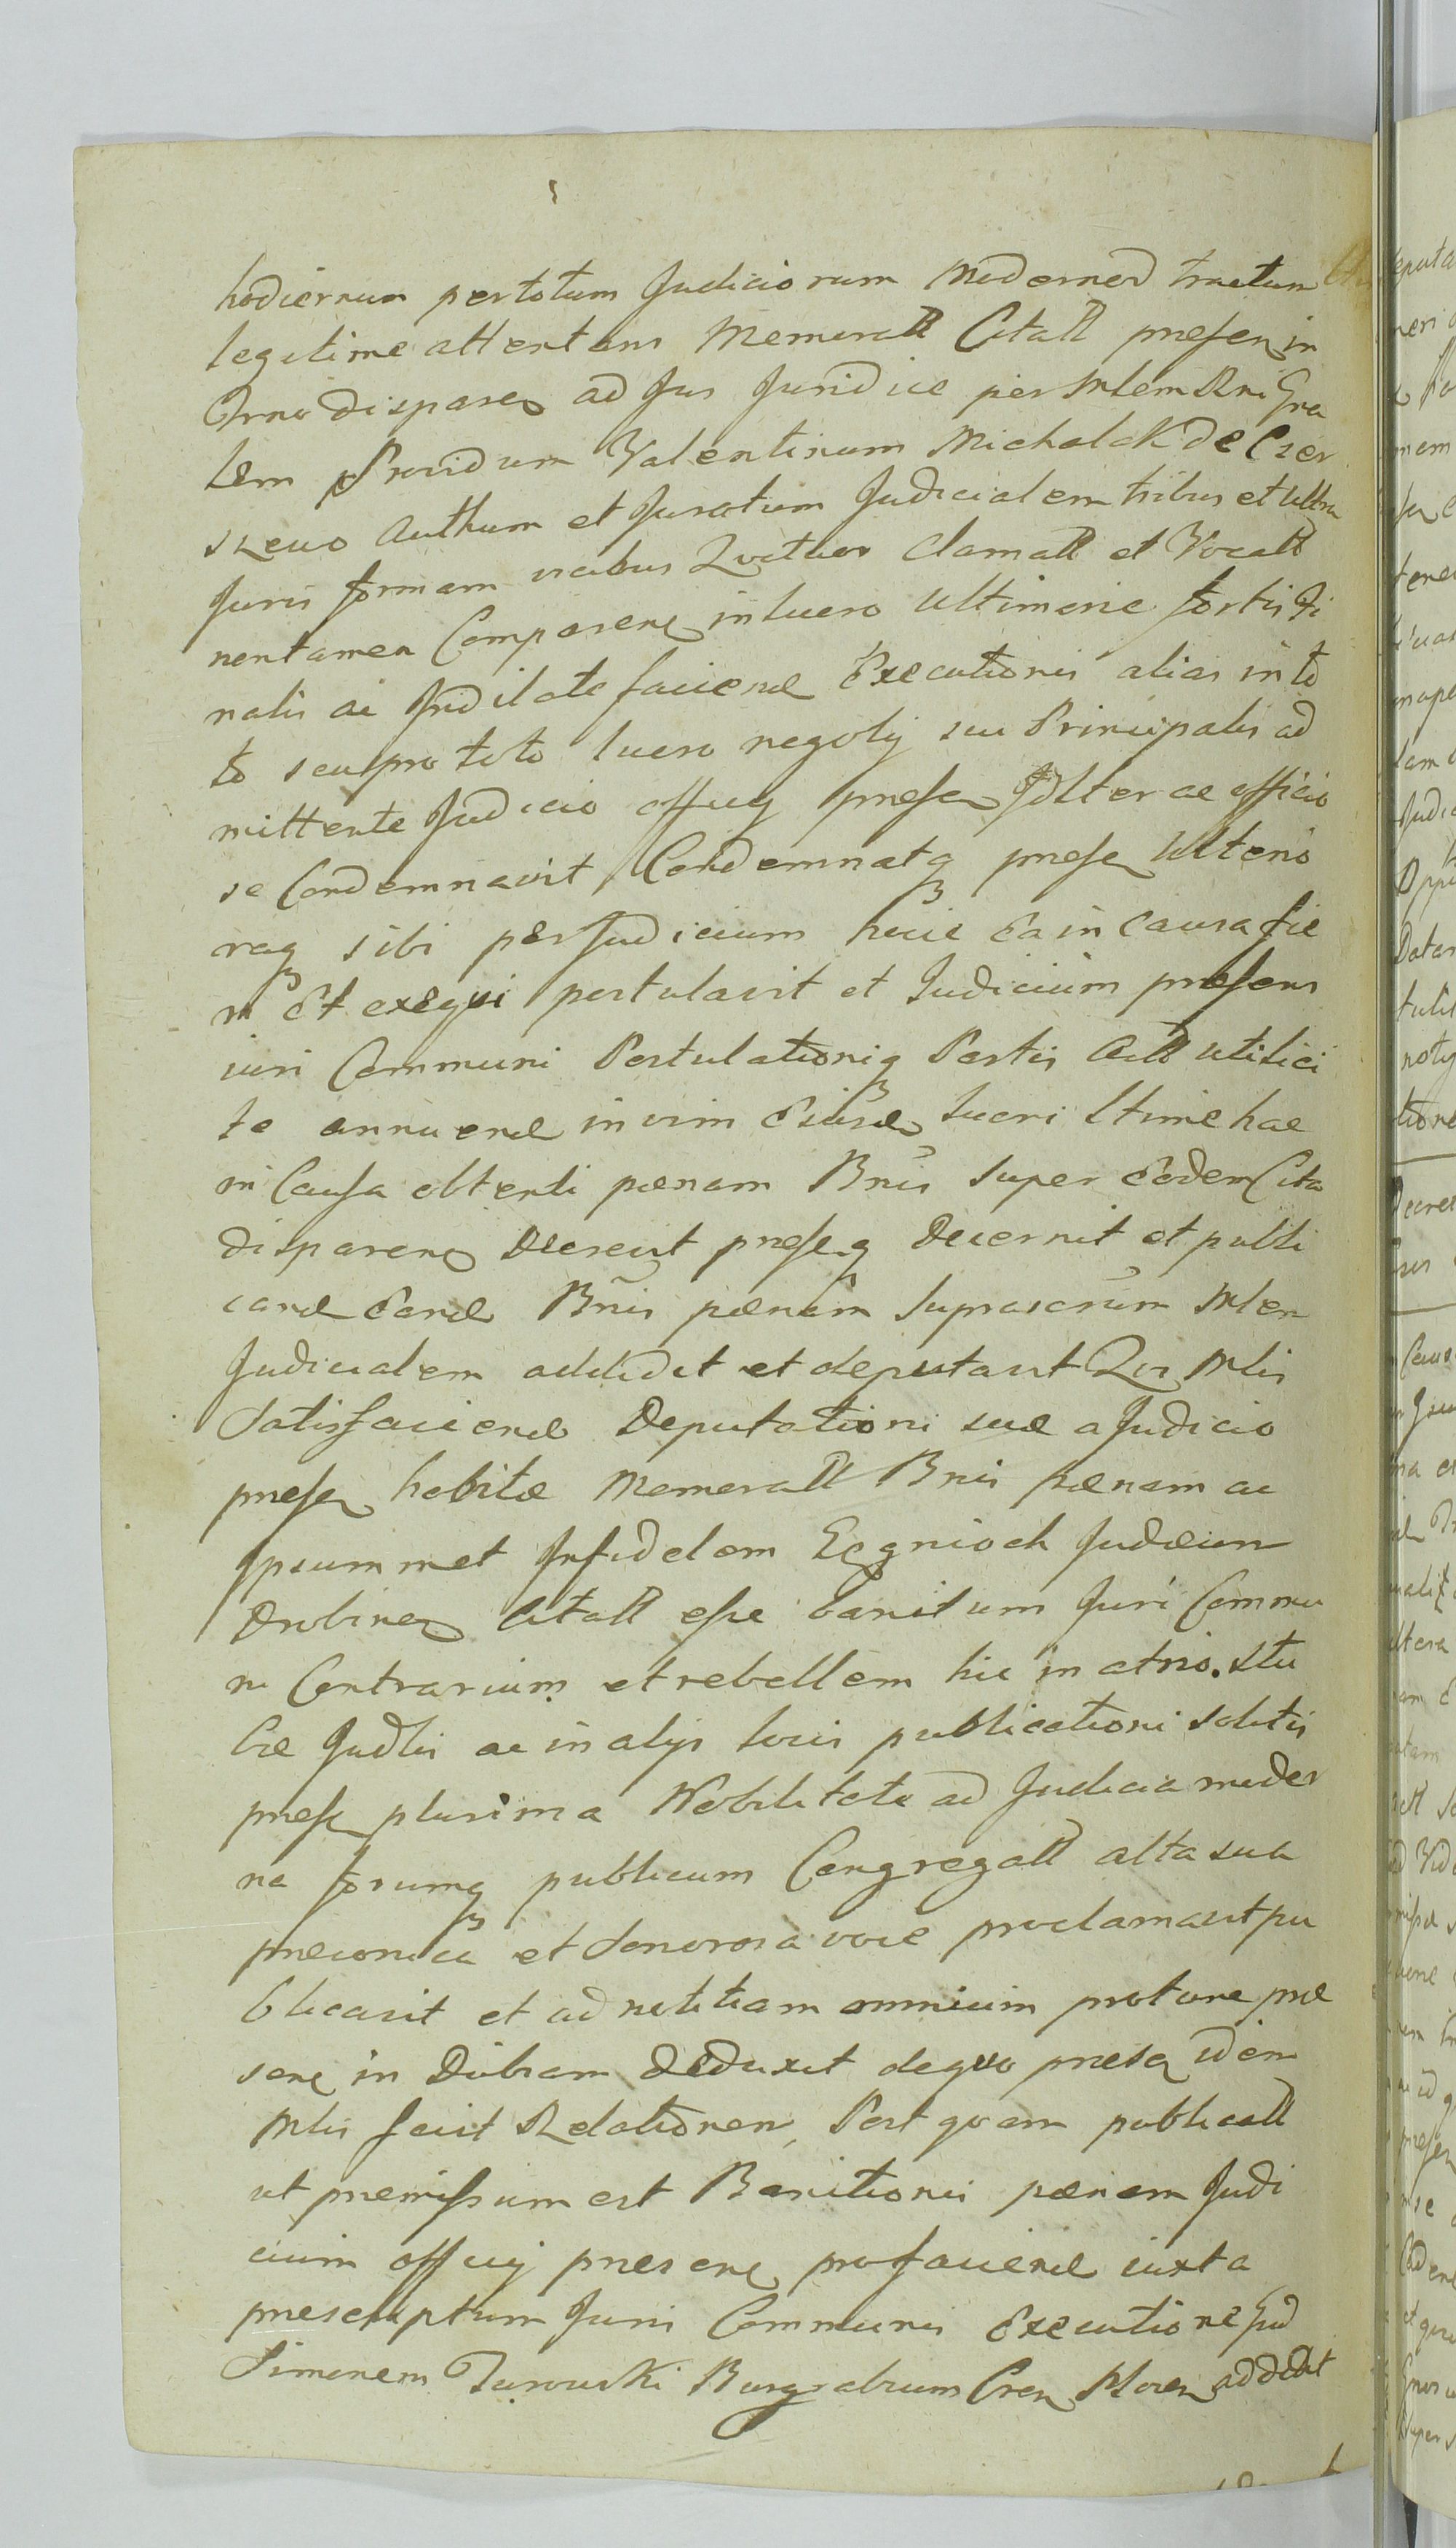 hodiernum pertotum Judiciorum Moderned tractum
legitime attentans Memorall Citall presen in
Termo disparen ad Jus Juridice per Mlem Rni Gna
lem Providum Valentinum Michalek de Czer
szewo Authum et Juratum Judicialem tribus et ultra
Juris formam vicibus Quatuor Clamall et Vocall
nentamen Comparen in lucro Ultimarie sortis Fi
nalis ac Indilate faciend Executionis alias in to
to seu pro toto lucro negotij sui Principalis ad
mittente Judicio officij presen Jdlter ac officio
se Condemnavit Condemnatq presen Ulterio
raq sibi per Judicium hocce Ea in Causa fie
ri Et exequi postulavit et Judicium presens
iuri Communi Postulationiq Partis Actt uti lici
te annuend in vim Eiusd lucri ltime hac
in Causa obtenti pænam Bnis super Eodem Cita
disparen Decrevit preseq Decernit et publi
cand Eand Bnis pænam suprascrum Mlem
Judicialem addidit et deputavit Qui Mlis
Satisfaciend Deputationi suæ a Judicio
presen habitæ Memorall Bnis pænam ac
ipsummet Infidelem Judæum
Drobinen Citall esse banitum Juri Commu
ni Contrarium et rebellem hic in atrio Stu
bæ Judlis ac in alijs locis publicationi solitis
presen plurima Nobilitate ad Judicia moder
na forumq publicum Congregall alta sua
preconica et sonorosa voce proclamavit pu
blicavit et ad notitiam omnium
in deduxit dequo presen idem
Mlis fecit Relationem, Post quam publicall
ut premissum est Banitionis pænam Judi
cium officij presens pro faciend iuxta
prescriptum Juris Communis Executione Gnd
Simonem Turowski Burgrabium Cren Plocen addidit